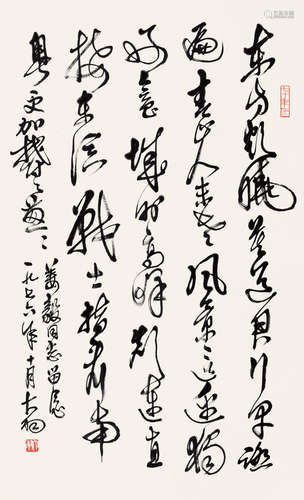 东方欲晓莫道君行早踏
遍青山人未老风景这边独
好会昌城外高峰颠连直
接东溟战士指看南
粤更加郁々葱々
姜毅同志留念
一九七六年十月大